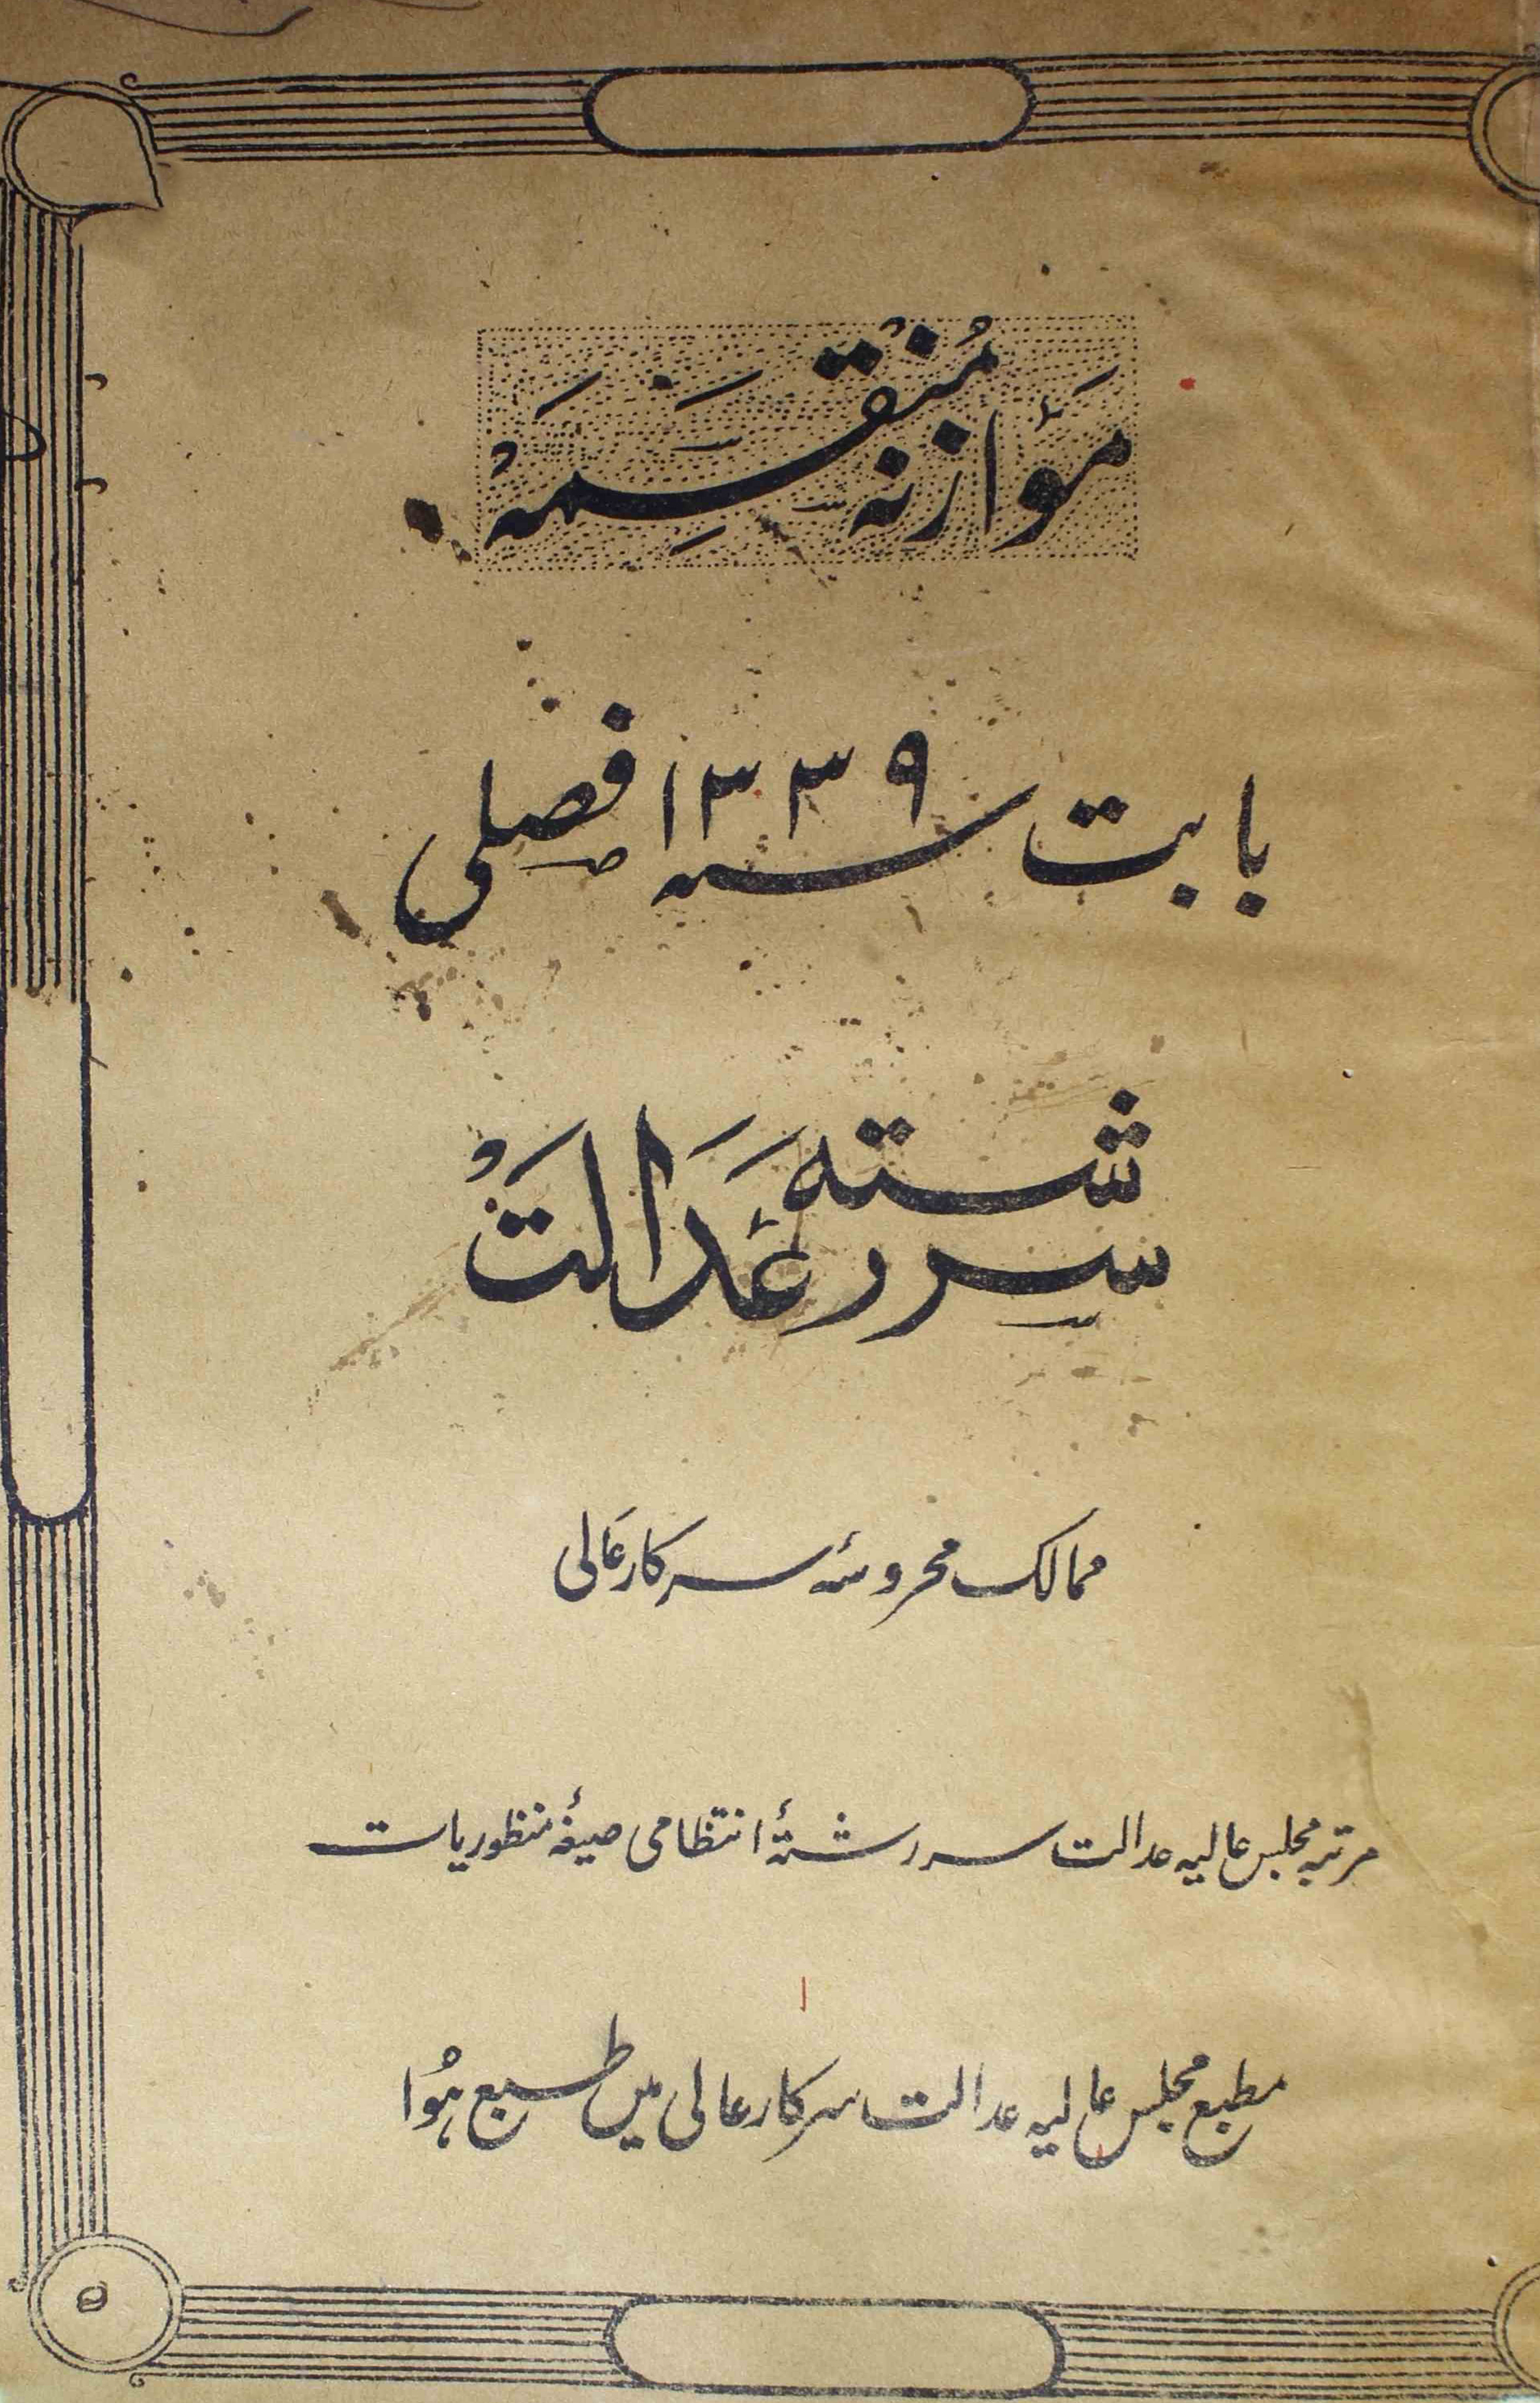 موازنہ منقسمہ
بابت سنہ ۱۳۳۹ فصلی
سررشتہ عدالت
ممالک محروسۂ سرکار عالی
مرتبہ مجلس عالیہ عدالت سررشتۂ انتظامی صیغۂ منظوریات
مطبع مجلس عالیہ عدالت سرکار عالی میں طبع ہُوا